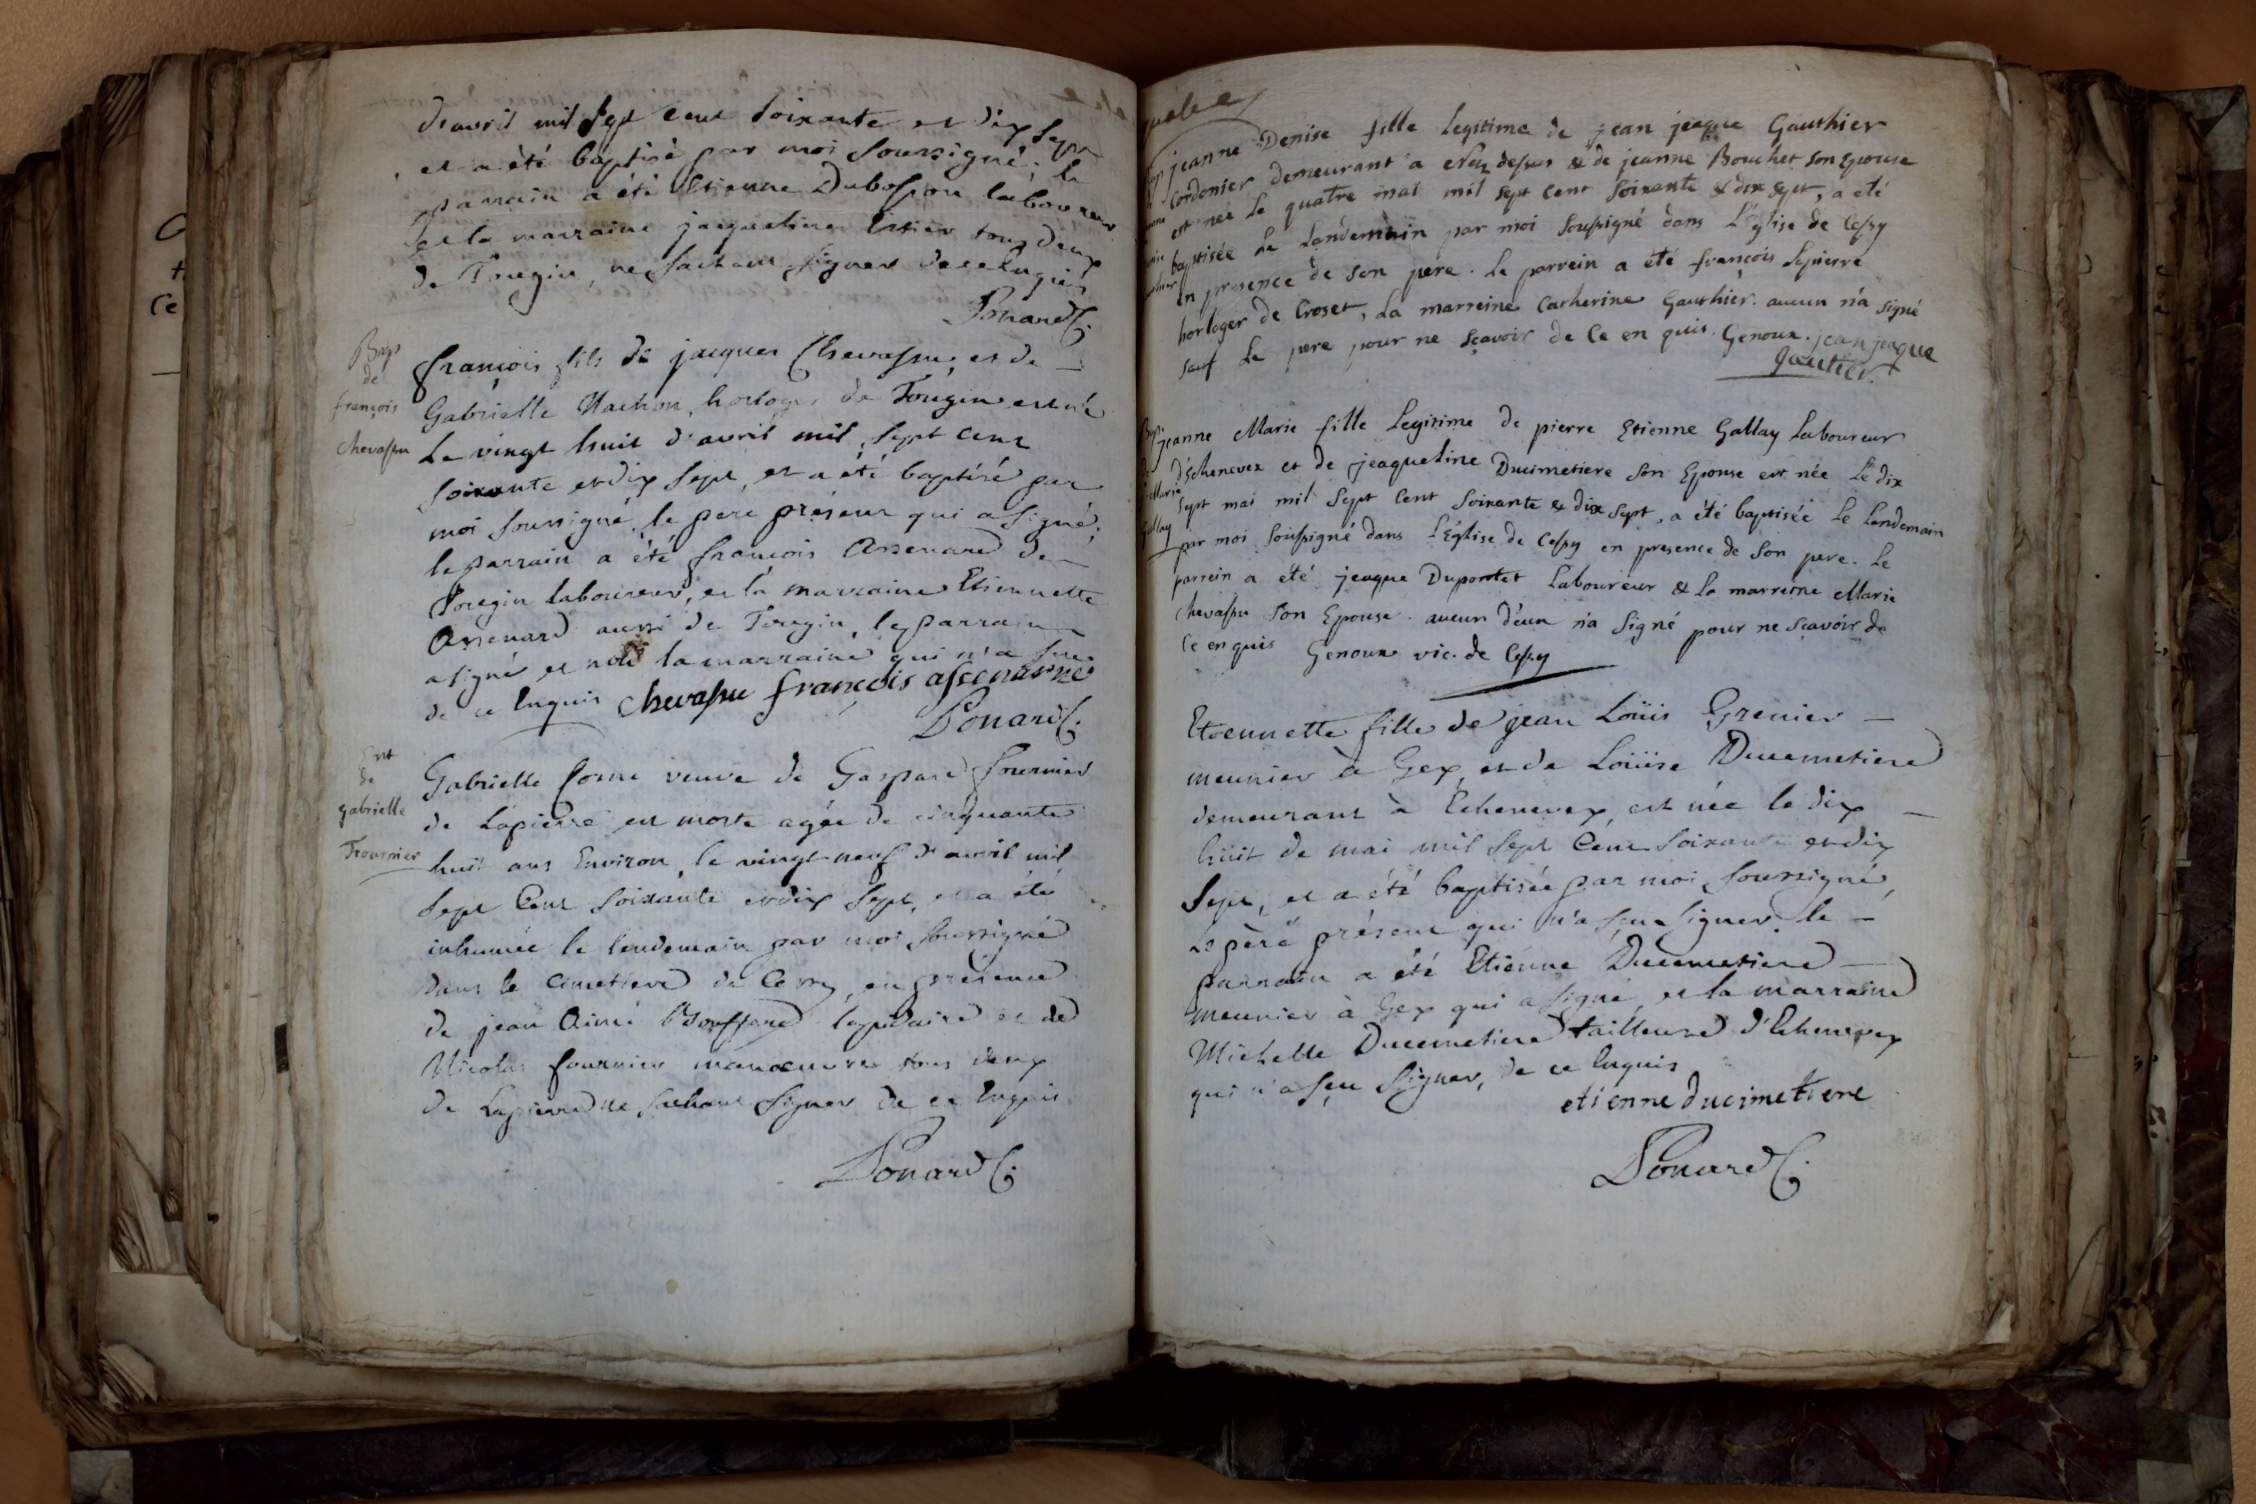 d'avril mil sept cent soixante et dix sept
et a été baptisé par moi soussigné; le
parrain a été Etienne laboureur
et la marraine jacqueline tous deux
de Tougin, ne sachant signer de ce Enquis
Ponard C.
Bap
de
françois
Chevassu
françois fils de jacques Chevassu, et de
Gabrielle Machon, horloger de Tougin est né
Le vingt huit d'avril mil sept cent
soixante et dix sept, et a été baptisé par
moi soussigné, le pere présent qui a signé;
le parrain a été françois Assenard de
Tougin laboureur, et la marraine Etiennette
Assenard aussi de Tougin, le parrain
a signé et non la marraine qui n'a sçu
de ce Enquis chevassu françois assenarne
Ponard C.
Ent
de
gabrielle
Fournier
Gabrielle veuve de Gaspard fournier
de Lapierre est morte agée de cinquante
huit ans Environ, le vingt neuf d'avril mil
sept Cent soixante et dix sept, et a été
inhumée le lendemain par moi soussigné
dans le cimetiere de Cessy, en présence
de jean Aimé lapidaire et de
Nicolas fournier manoeuvre tous deux
de Lapierre ne sachant signer de ce Enquis
Ponard C.
jeanne Denise fille Legitime de jean jeaque Gauthier
Cordonier demeurant a dessus & de jeanne Bouchet son Epouse
est née Le quatre mai mil sept cent soixante & dix sept, a été
baptisée Le Landemain par moi soussigné dans L'église de Cessy
en presence de son pere. Le parrein a été françois Lepierre
horloger de Croset, La marreine Catherine Gauthier. aucun n'a signé
sauf Le pere pour ne sçavoir de Ce en quis. Genoux. jean jeaque
gautier
Bap.
Marie
Gallay
jeanne Marie fille Legitime de pierre Etienne Gallay Laboureur
d'Echenevex et de jeaqueline Ducimetiere son Epouse est née Le dix
sept mai mil sept Cent soixante & dix sept, a été baptisée Le Landemain
par moi soussigné dans L'Église de Cessy en presence de son pere. Le
parrein a été jeaque Dupontet Laboureur & la marreine Marie
Chevassu son Epouse. aucun d'eux n'a signé pour ne sçavoir de
Ce en quis Genoux vic. de Cessy
Etiennette fille de jean Loüis Grenier
meunier à Gex, et de Loüise Ducemetiere
demeurant à Echenevex, est née le dix
huit de mai mil sept Cent soixante et dix
sept, et a été baptisée par moi soussigné,
Le père présent qui n'a sçu signer. le
parrain a été Etienne Ducemetiere
meunier à Gex qui a signé, et la marraine
Michelle Ducemetiere tailleuse d'Echenevex
qui n'a sçu signer, de ce Enquis
etienne ducimetiere
Ponard C.